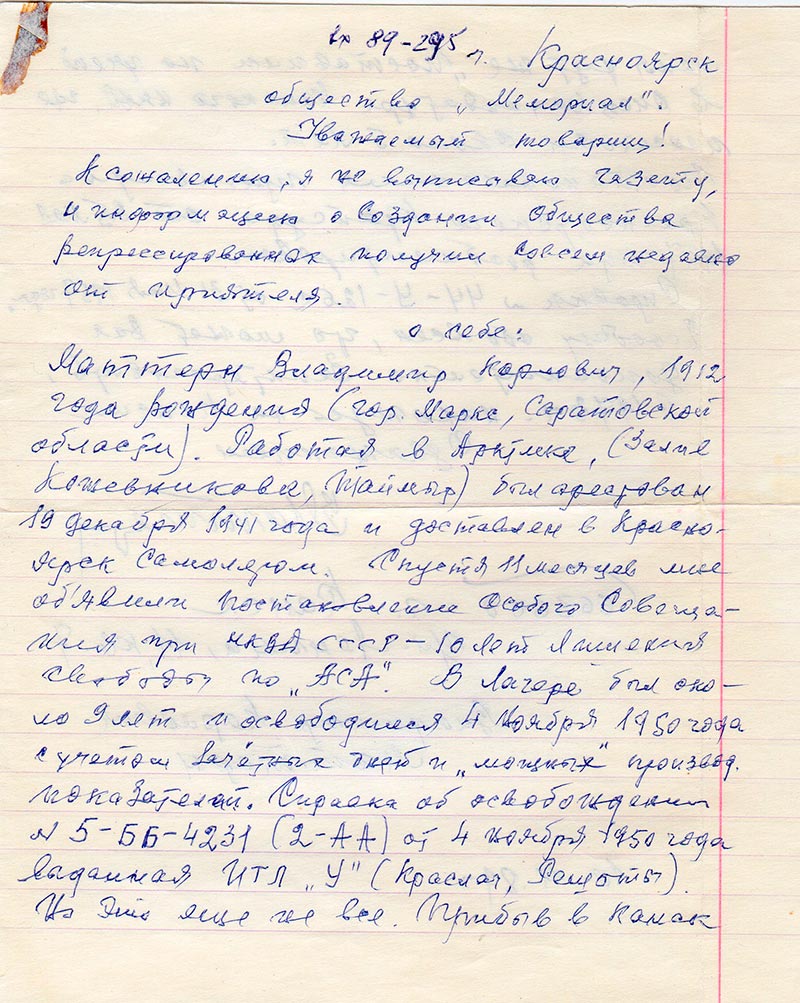 вх 89-295
г. Красноярск
общество „Мемориал".
Уважаемый товарищ!
К сожалению, я не выписываю газету,
и информацию о создании общества
репрессированных получил совсем недавно
от приятеля.
о себе:
Маттерн Владимир Карлович, 1912
года рождения (гор. Маркс, Саратовской
области). Работая в Арктике, (Залив
Кожевникова, Таймыр) был арестован
19 декабря 1941 года и доставлен в Красно-
ярск самолётом. Спустя 11 месяцев мне
об'явили постановление Особого Совеща-
ния при НКВД СССР – 10 лет лишения
свободы по „АСА". В лагере был око-
ло 9 лет и освободился 4 ноября 1950 года
с учетом зачётных дней и „мощных" производ.
показателей. Справка об освобождении
№ 5-ББ-4231 (2-АА) от 4 ноября 1950 года
выданная ИТЛ „У" (Краслаг, Решоты).
Но это еще не все. Прибыв в Канск